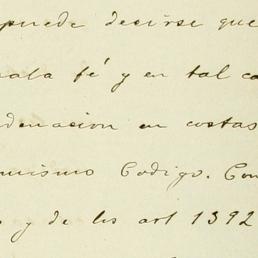 puede decirse que
mala fé y en tal ca
denacion en costas
mismo Codigo. Con
y de los art 1392